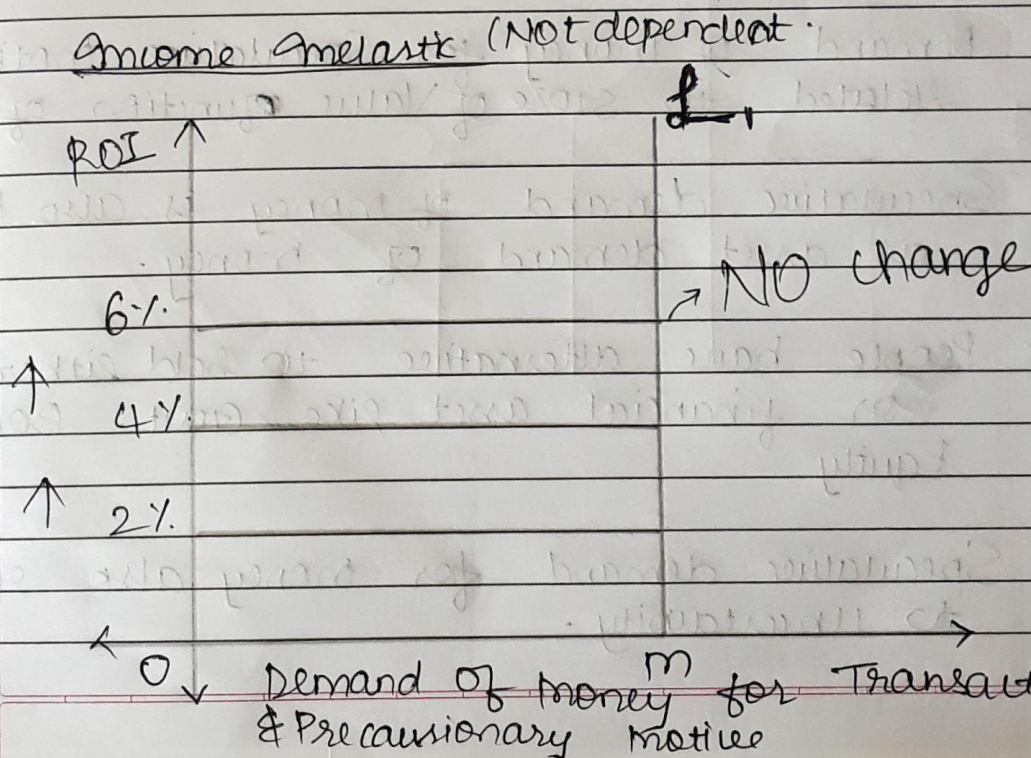 Income Inelastic (Not dependent.
L1
ROI ↑
→ NO change
6%.
↑
4%.
↑ 2%.
O
m
Demand of money for Transact
& Precausionary motive